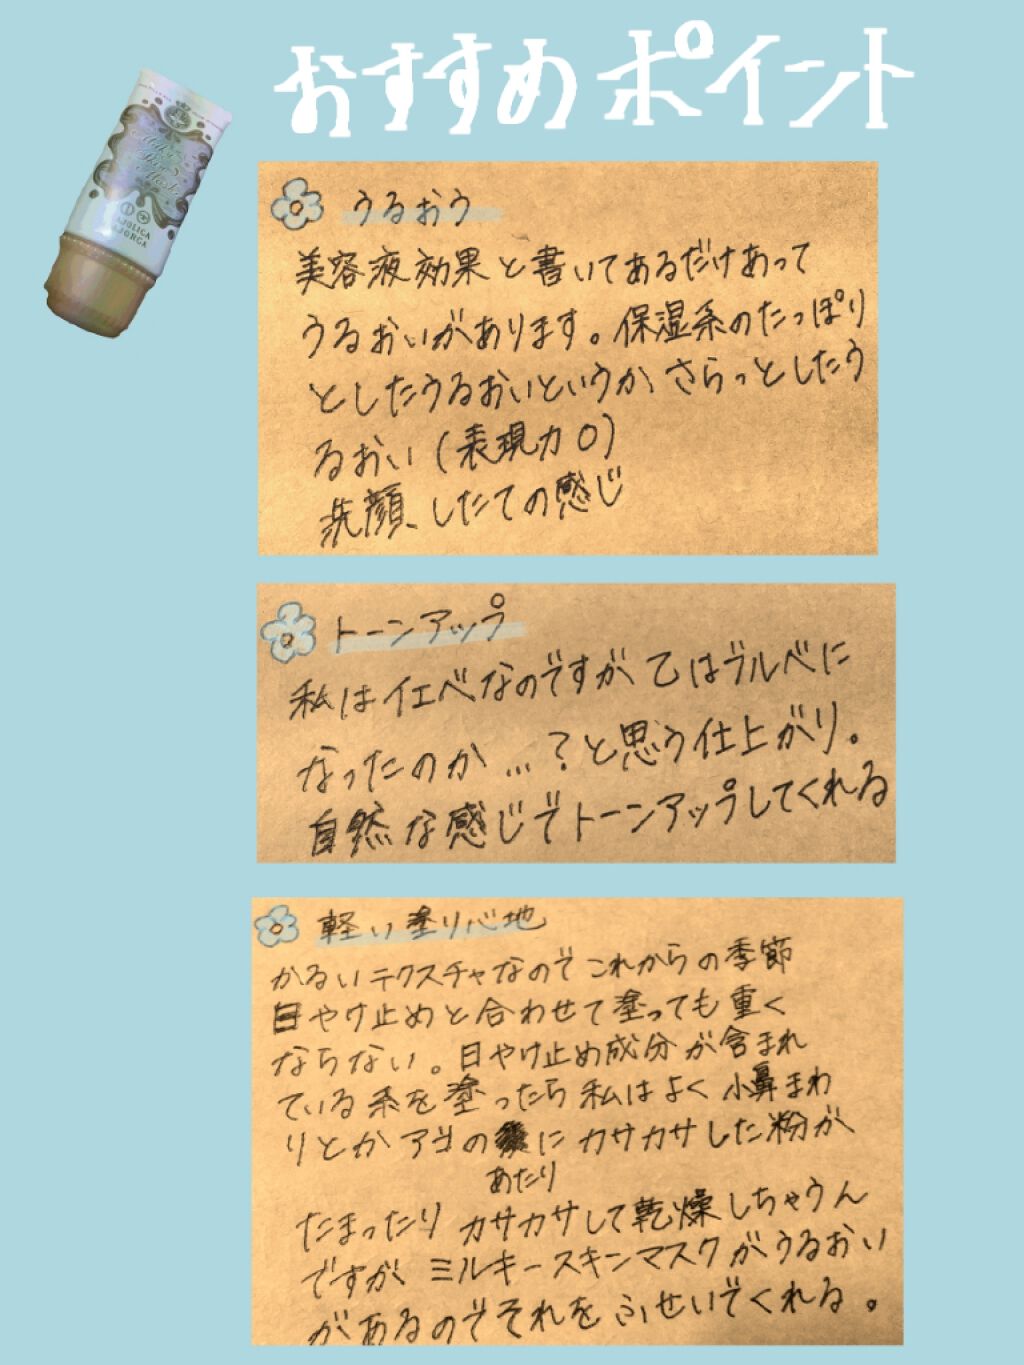 おすすめポイント
MAJOLICA
MAJORCA
うるおう
美容液効果と書いてあるだけあって
うるおいがあります。保湿系のたっぽり
としたうるおいというか、さらっとしたう
るおい(表現力0)
洗顔、したての感じ
トーンアップ
私はイエベなのですが乙はブルベに
なったのか…?と思う仕上がり。
自然な感じでトーンアップしてくれる
軽い塗り心地
かるいテクスチャなのでこれからの季節
日やけ止めと合わせて塗っても重く
ならない。日やけ止め成分が含まれ
ている系を塗ったら私はよく小鼻まわ
りとかアゴのあたりにカサカサした粉が
たまったりカサカサして乾燥しちゃうん
ですが、ミルキースキンマスクがうるおい
があるのでそれをふせいでくれる。